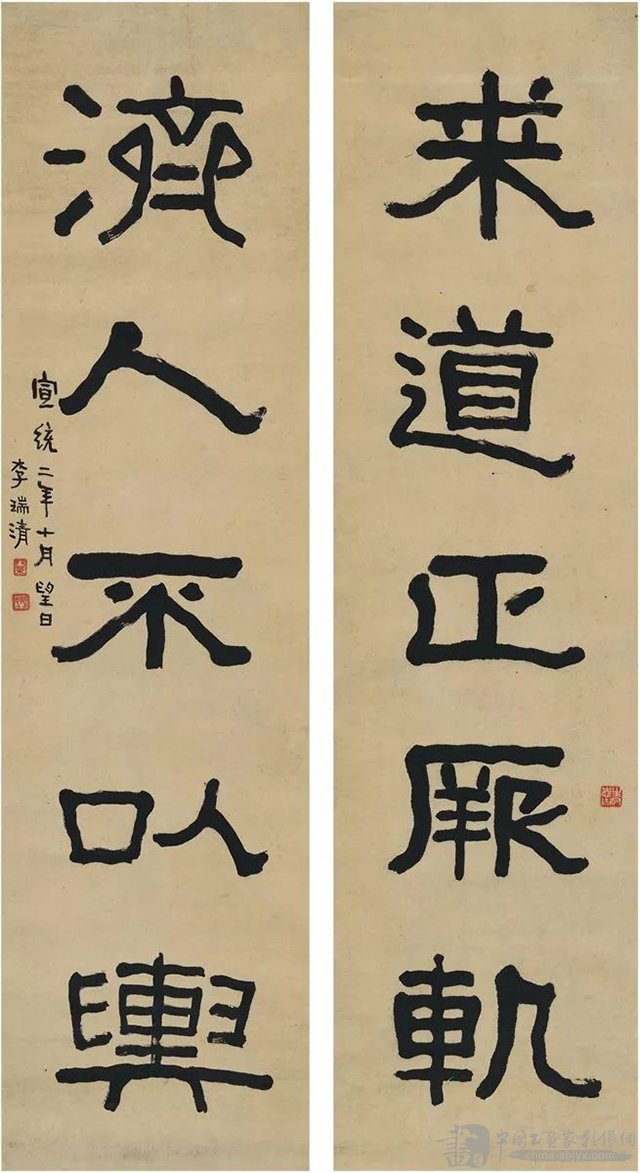 求道正厥軌
濟人不以輿
宣統二年十月望日
李瑞清
china-shjyx.com